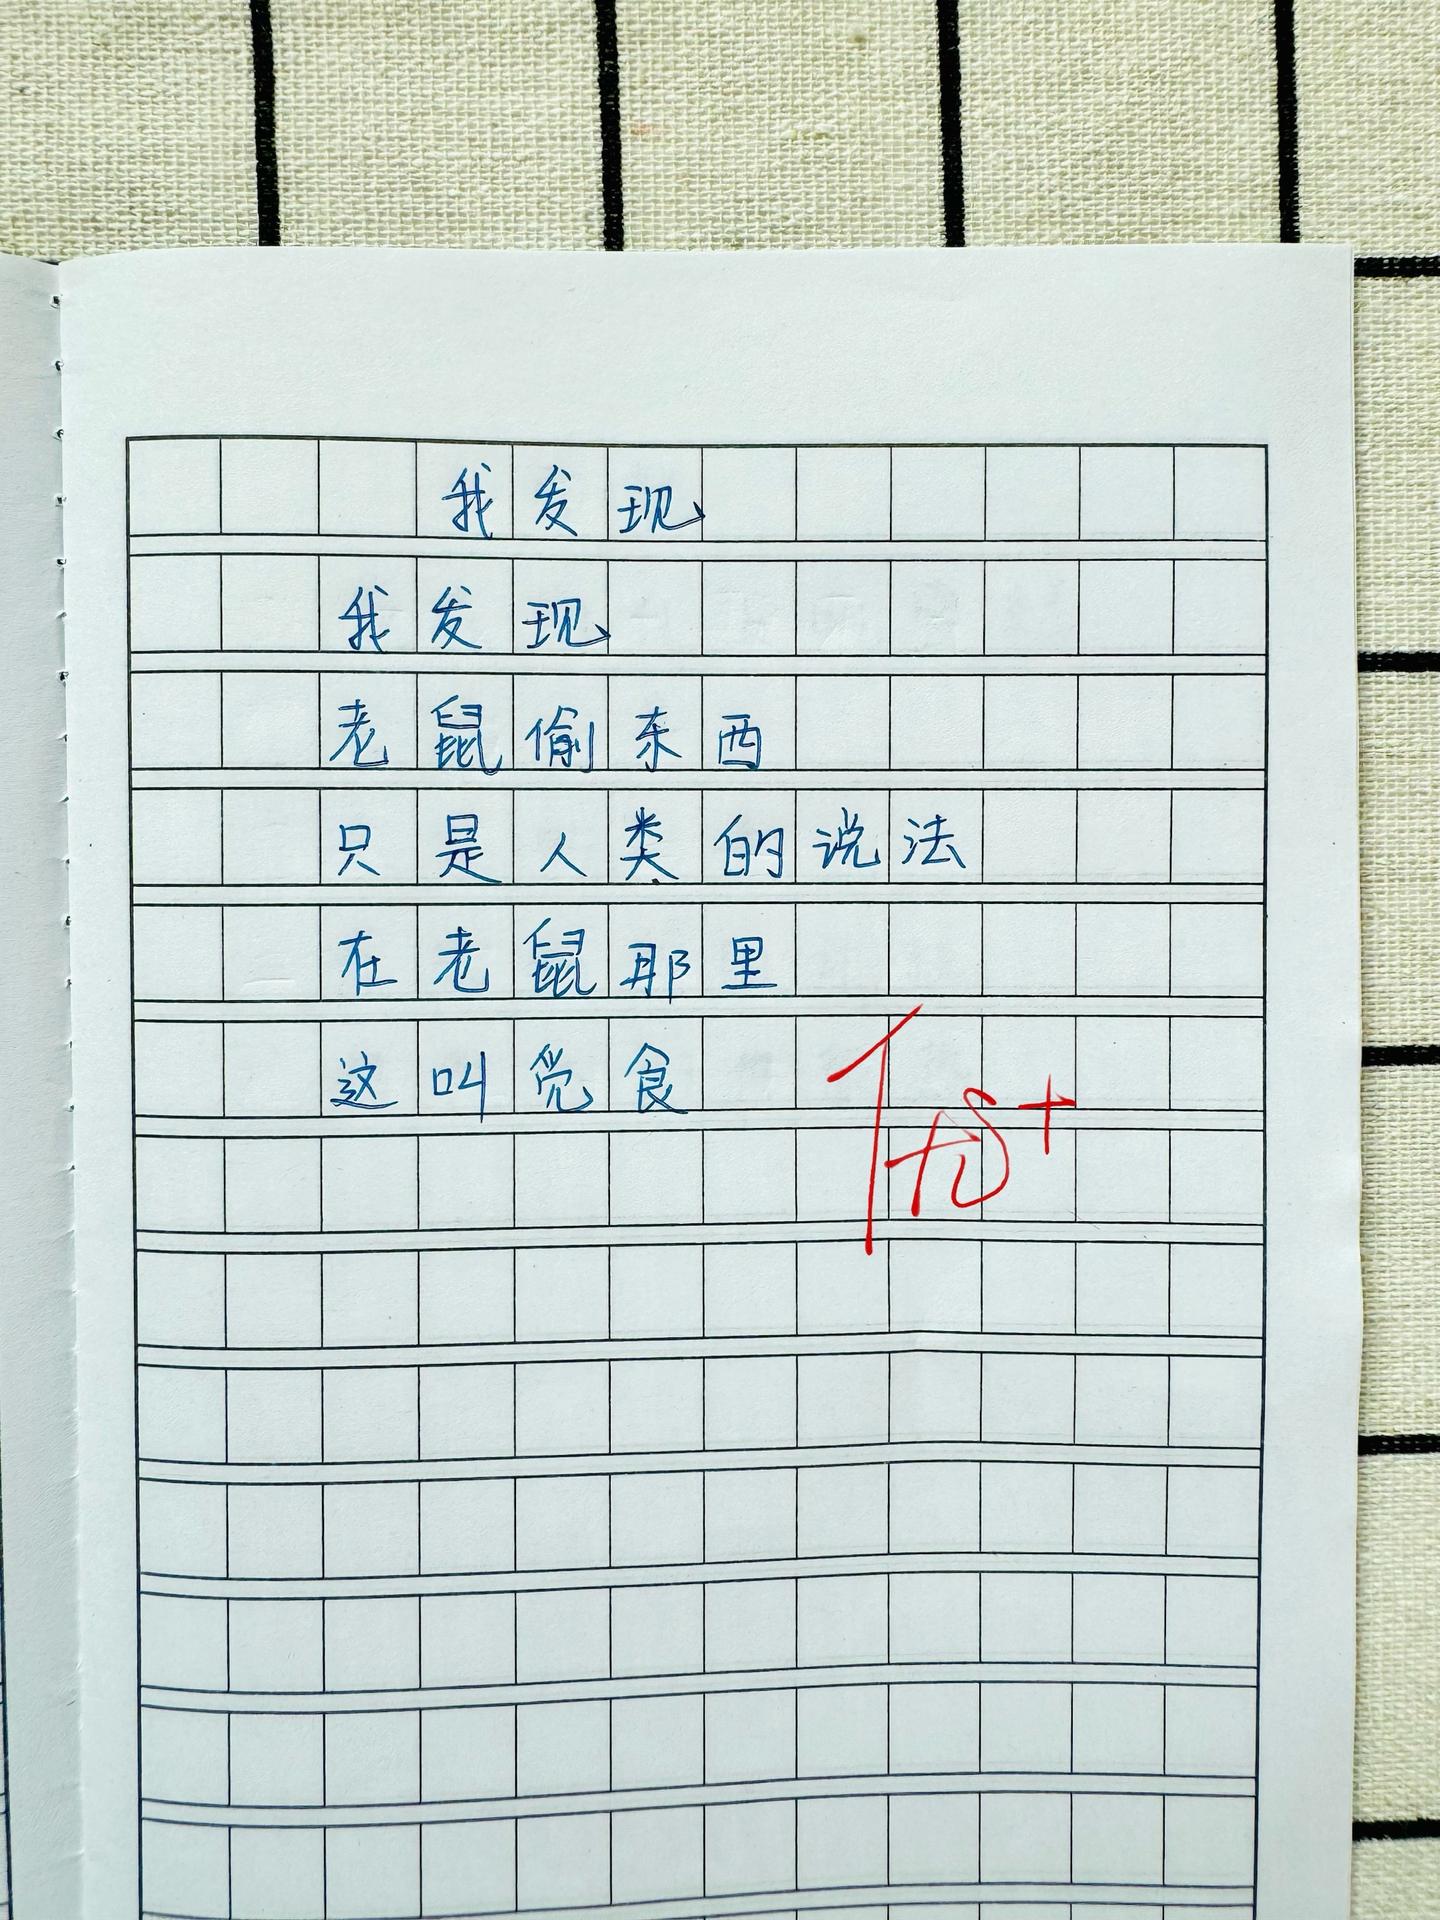 我发现
我发现
老鼠偷东西
只是人类的说法
在老鼠那里
这叫觉食
优+